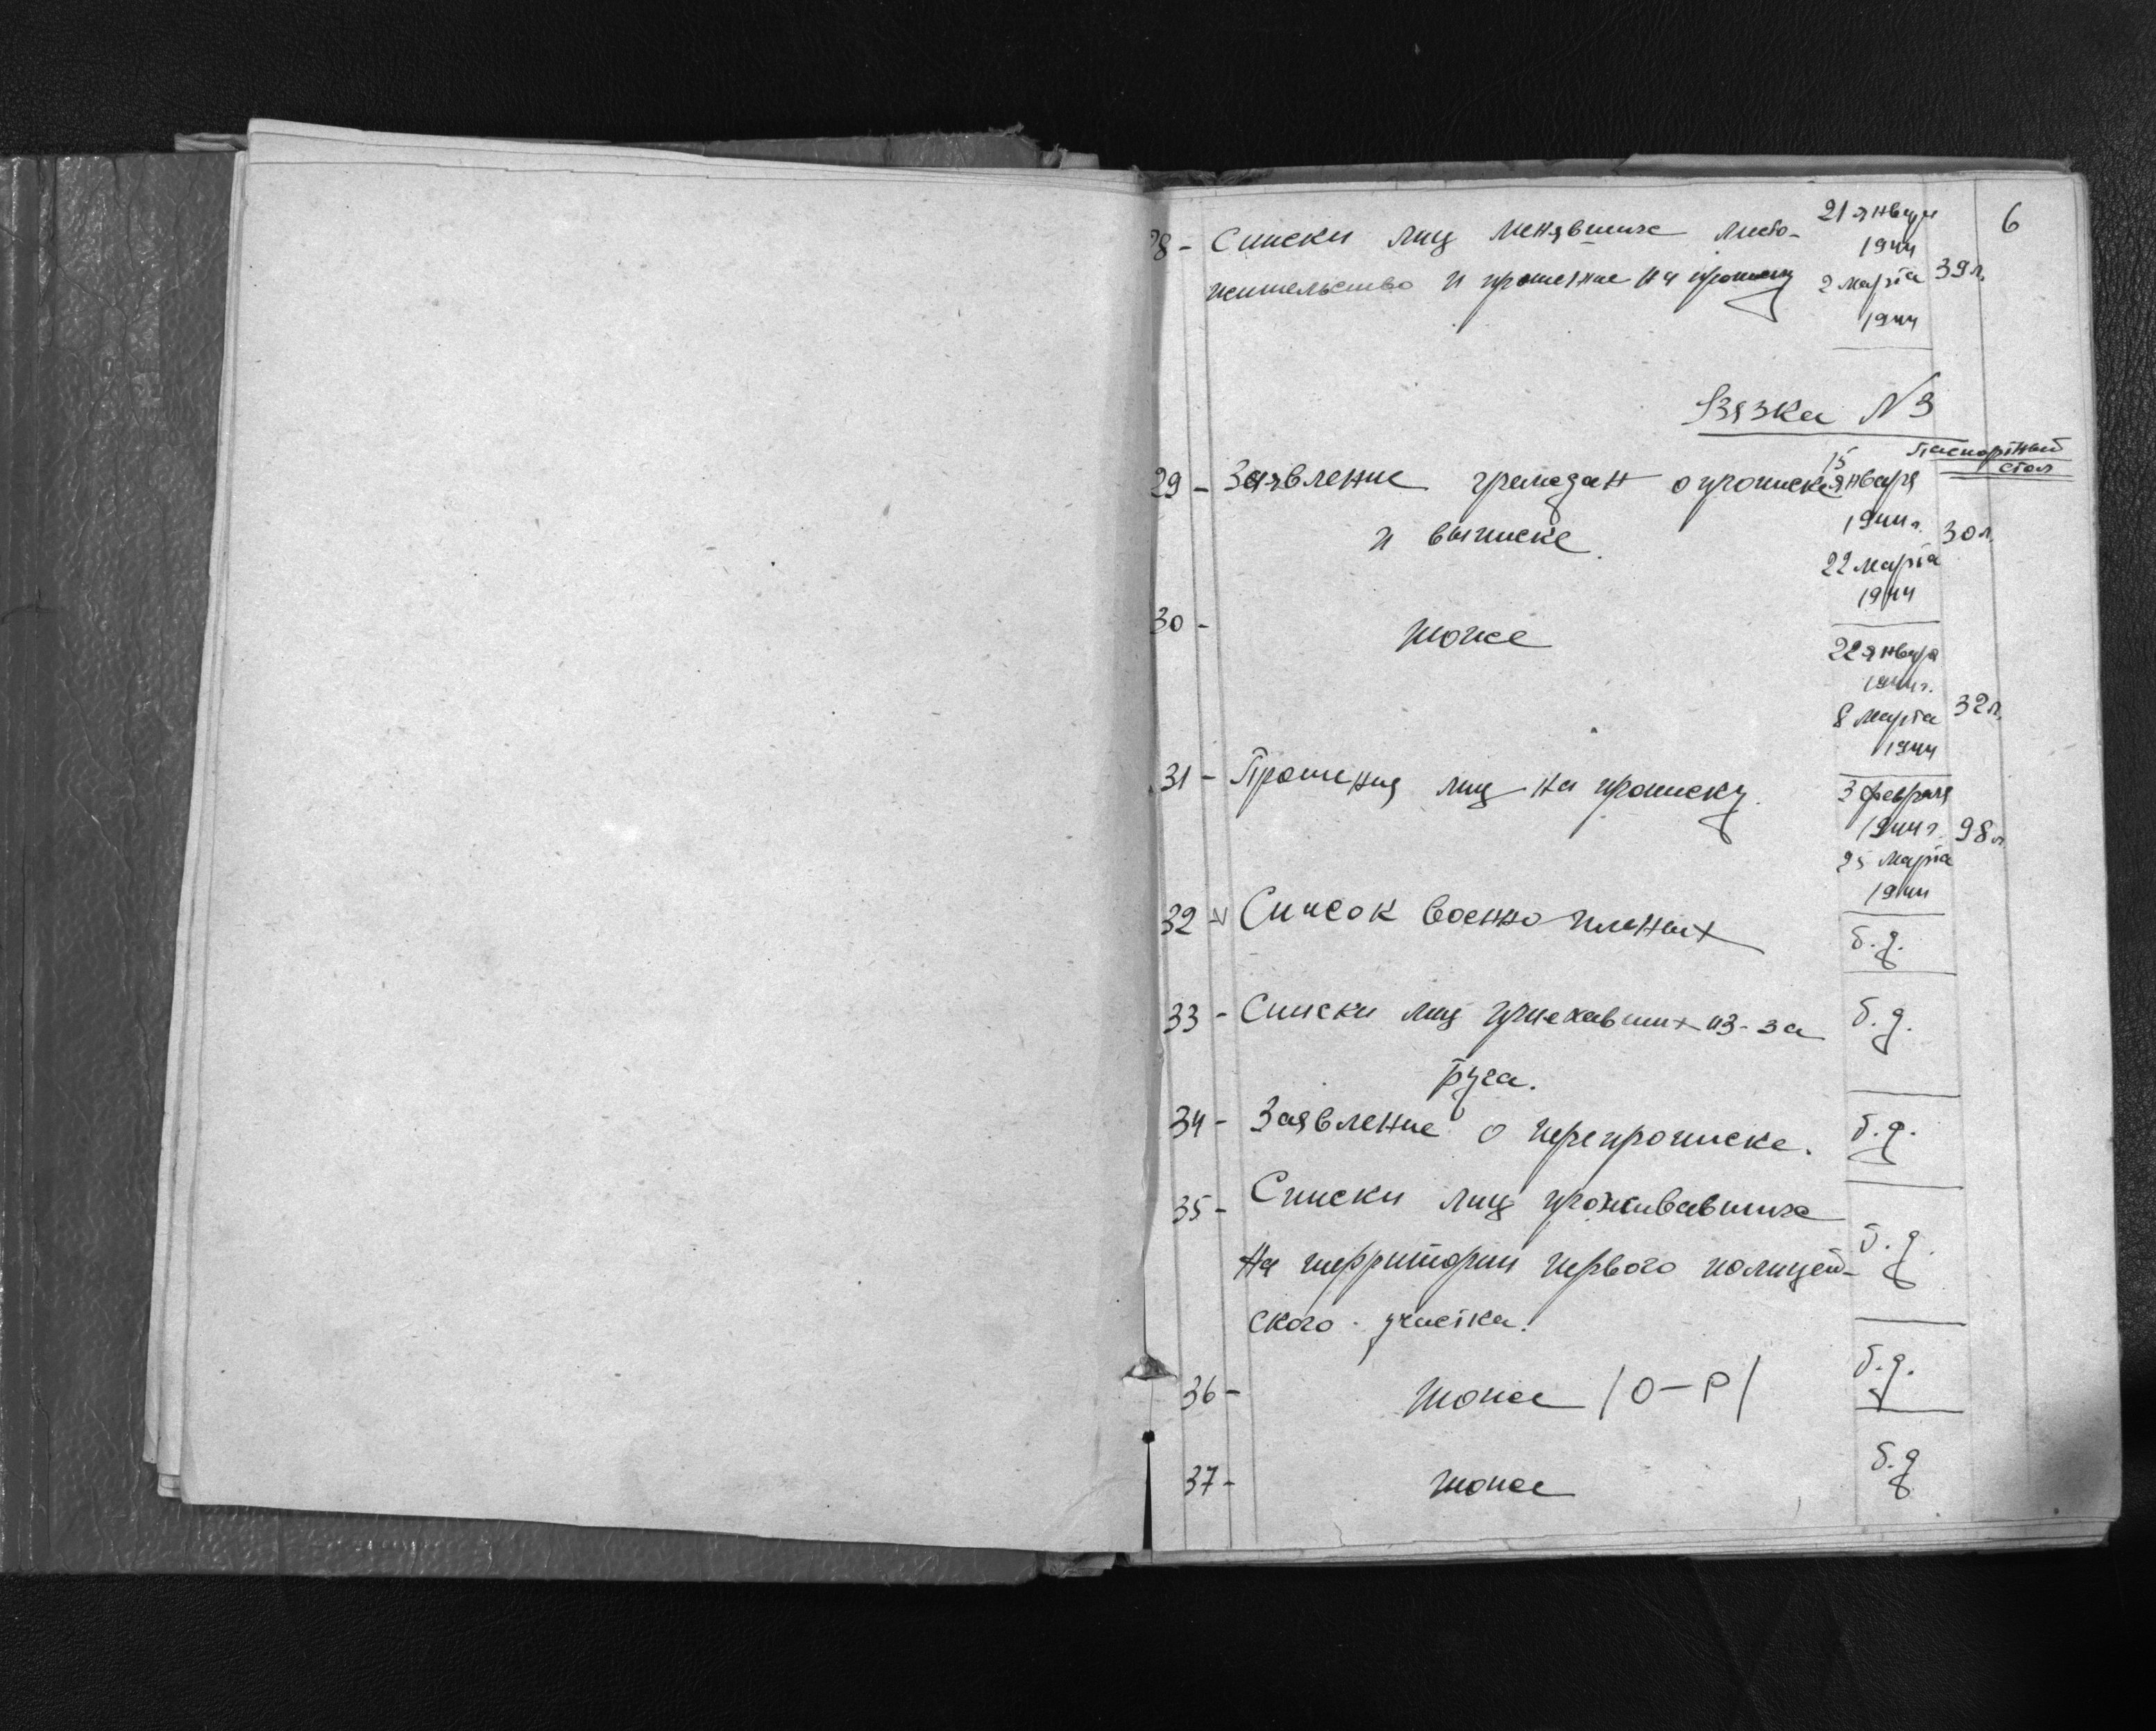 6
28 - Списки лиц менявших место- 21 января
1944
жительство и прошение на прописку 2 марта 39 л.
1944
Вязка N 3
Паспортный
стол
29 - Заявление граждан о прописке 15 января
и выписке. 1944 г. 30 л.
22 марта
1944
30 - тоже
22 января
1944 г.
8 марта 32 л.
1944
31 - Прошения лиц на прописку. 3 февраля
1944 г. 98 л
25 марта
1944
32 - Список военно пленых б.д.
33 - Списки лиц приехавших из-за б.д.
буга.
34 - Заявление о перепрописке. б.д.
35 - Списки лиц проживавших
на территории первого полицей- б.д.
ского участка.
36 - тоже /О-Р/ б.д.
37 - тоже б.д